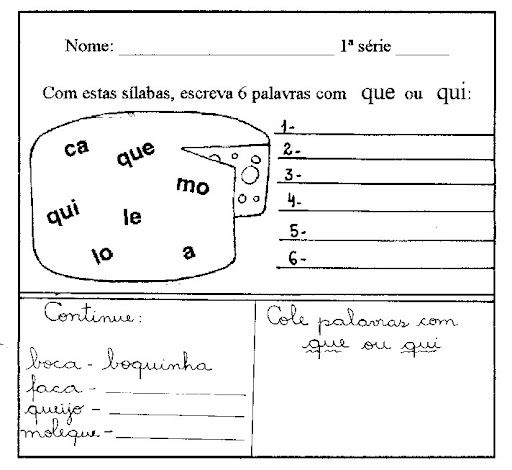 Nome: ______________________ 1ª série ______
Com estas sílabas, escreva 6 palavras com que ou qui:
ca
que
mo
qui
le
lo
a
1-
2-
3-
4-
5-
6-
Continue:
boca - boquinha
faca - ______________
queijo - ______________
moleque- ______________
Cole palavras com
que ou qui